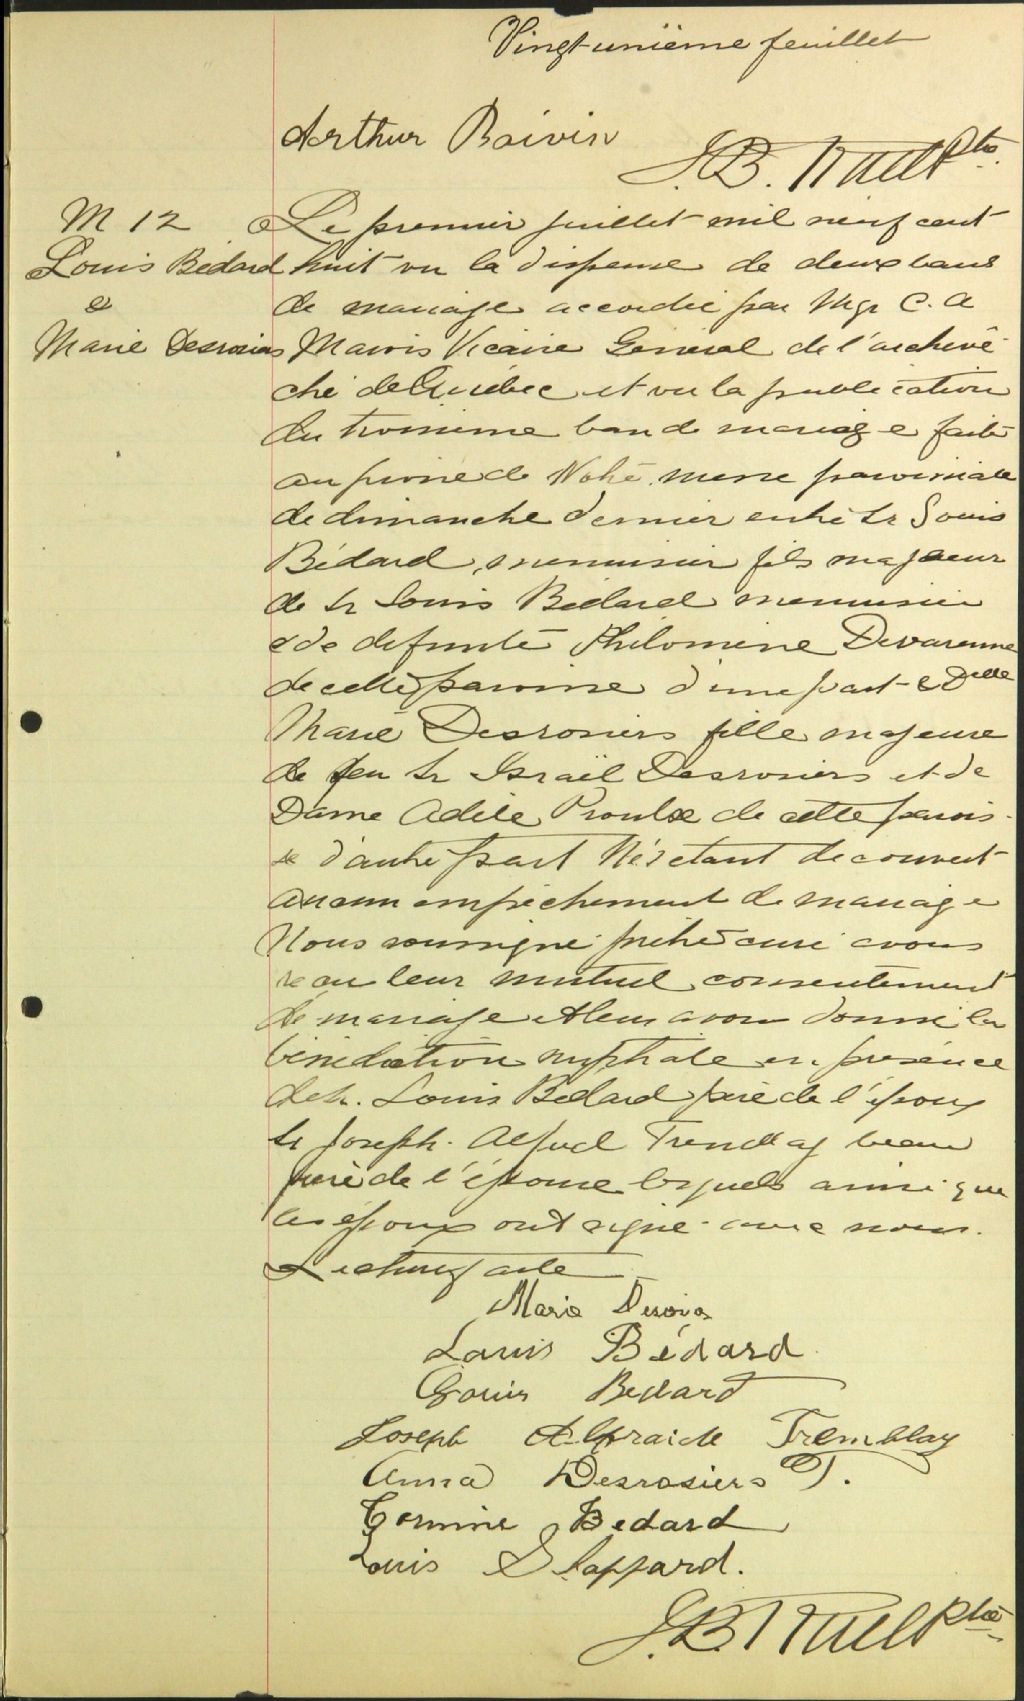 Vingt unième feuillet
Arthur Boivin
J.B. Ruel Ptre.
M 12
Louis Bédard
&
Marie Desrosiers
Le premier juillet mil neuf cent
huit vu la dispense de deux bans
de mariage accordée par Mgr C. A
Marois Vicaire Général de l'archevê
ché de Québec et vu la publication
du troisième ban de mariage faite
au prône de Notre messe paroissiale
de dimanche dernier entre Sr Louis
Bédard, menuisier fils majeur
de Sr Louis Bédard menuisier
& de defunte Philomène Devarenne
de cette paroisse d'une part & Delle
Marie Desrosiers fille majeure
de feu Sr Israël Desrosiers et de
Dame Adèle Proulx de cette parois-
se d'autre part N'étant decouvert
aucun empêchement de mariage
Nous soussigné prêtre curé avons
reçu leur mutuel consentement
de mariage et leur avons donné la
bénédiction nuptiale en présence
de Sr. Louis Bédard père de l'époux
Sr Joseph. Tremblay beau
frère de l'épouse lesquels ainsi que
les époux ont signé avec nous.
Lecture faite
Marie
Louis Bédard
Louis Bédard
Joseph Tremblay
Anna Desrosiers T.
Corinne Bedard
Louis
J.B. Ruel Ptre